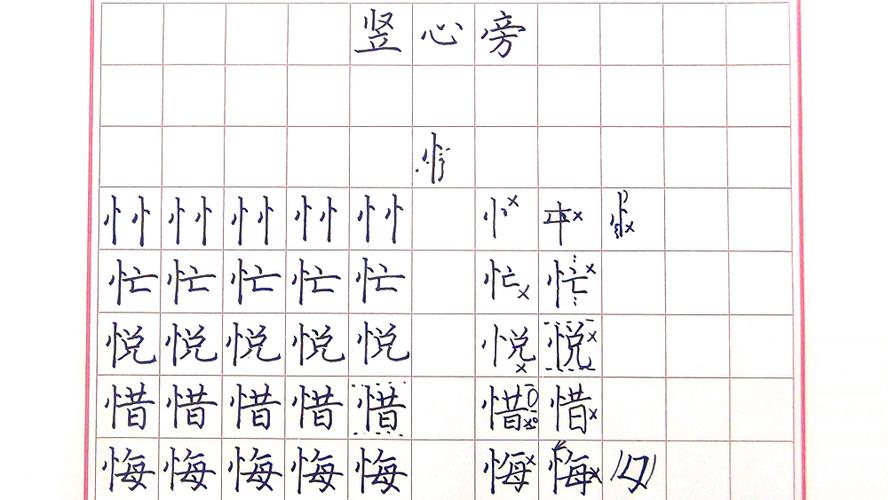 竖心旁
忄
忄忄忄忄忄忄忄忄忄忄
忙忙忙忙忙忙忙
悦悦悦悦悦悦悦
惜惜惜惜惜惜惜
悔悔悔悔悔悔悔